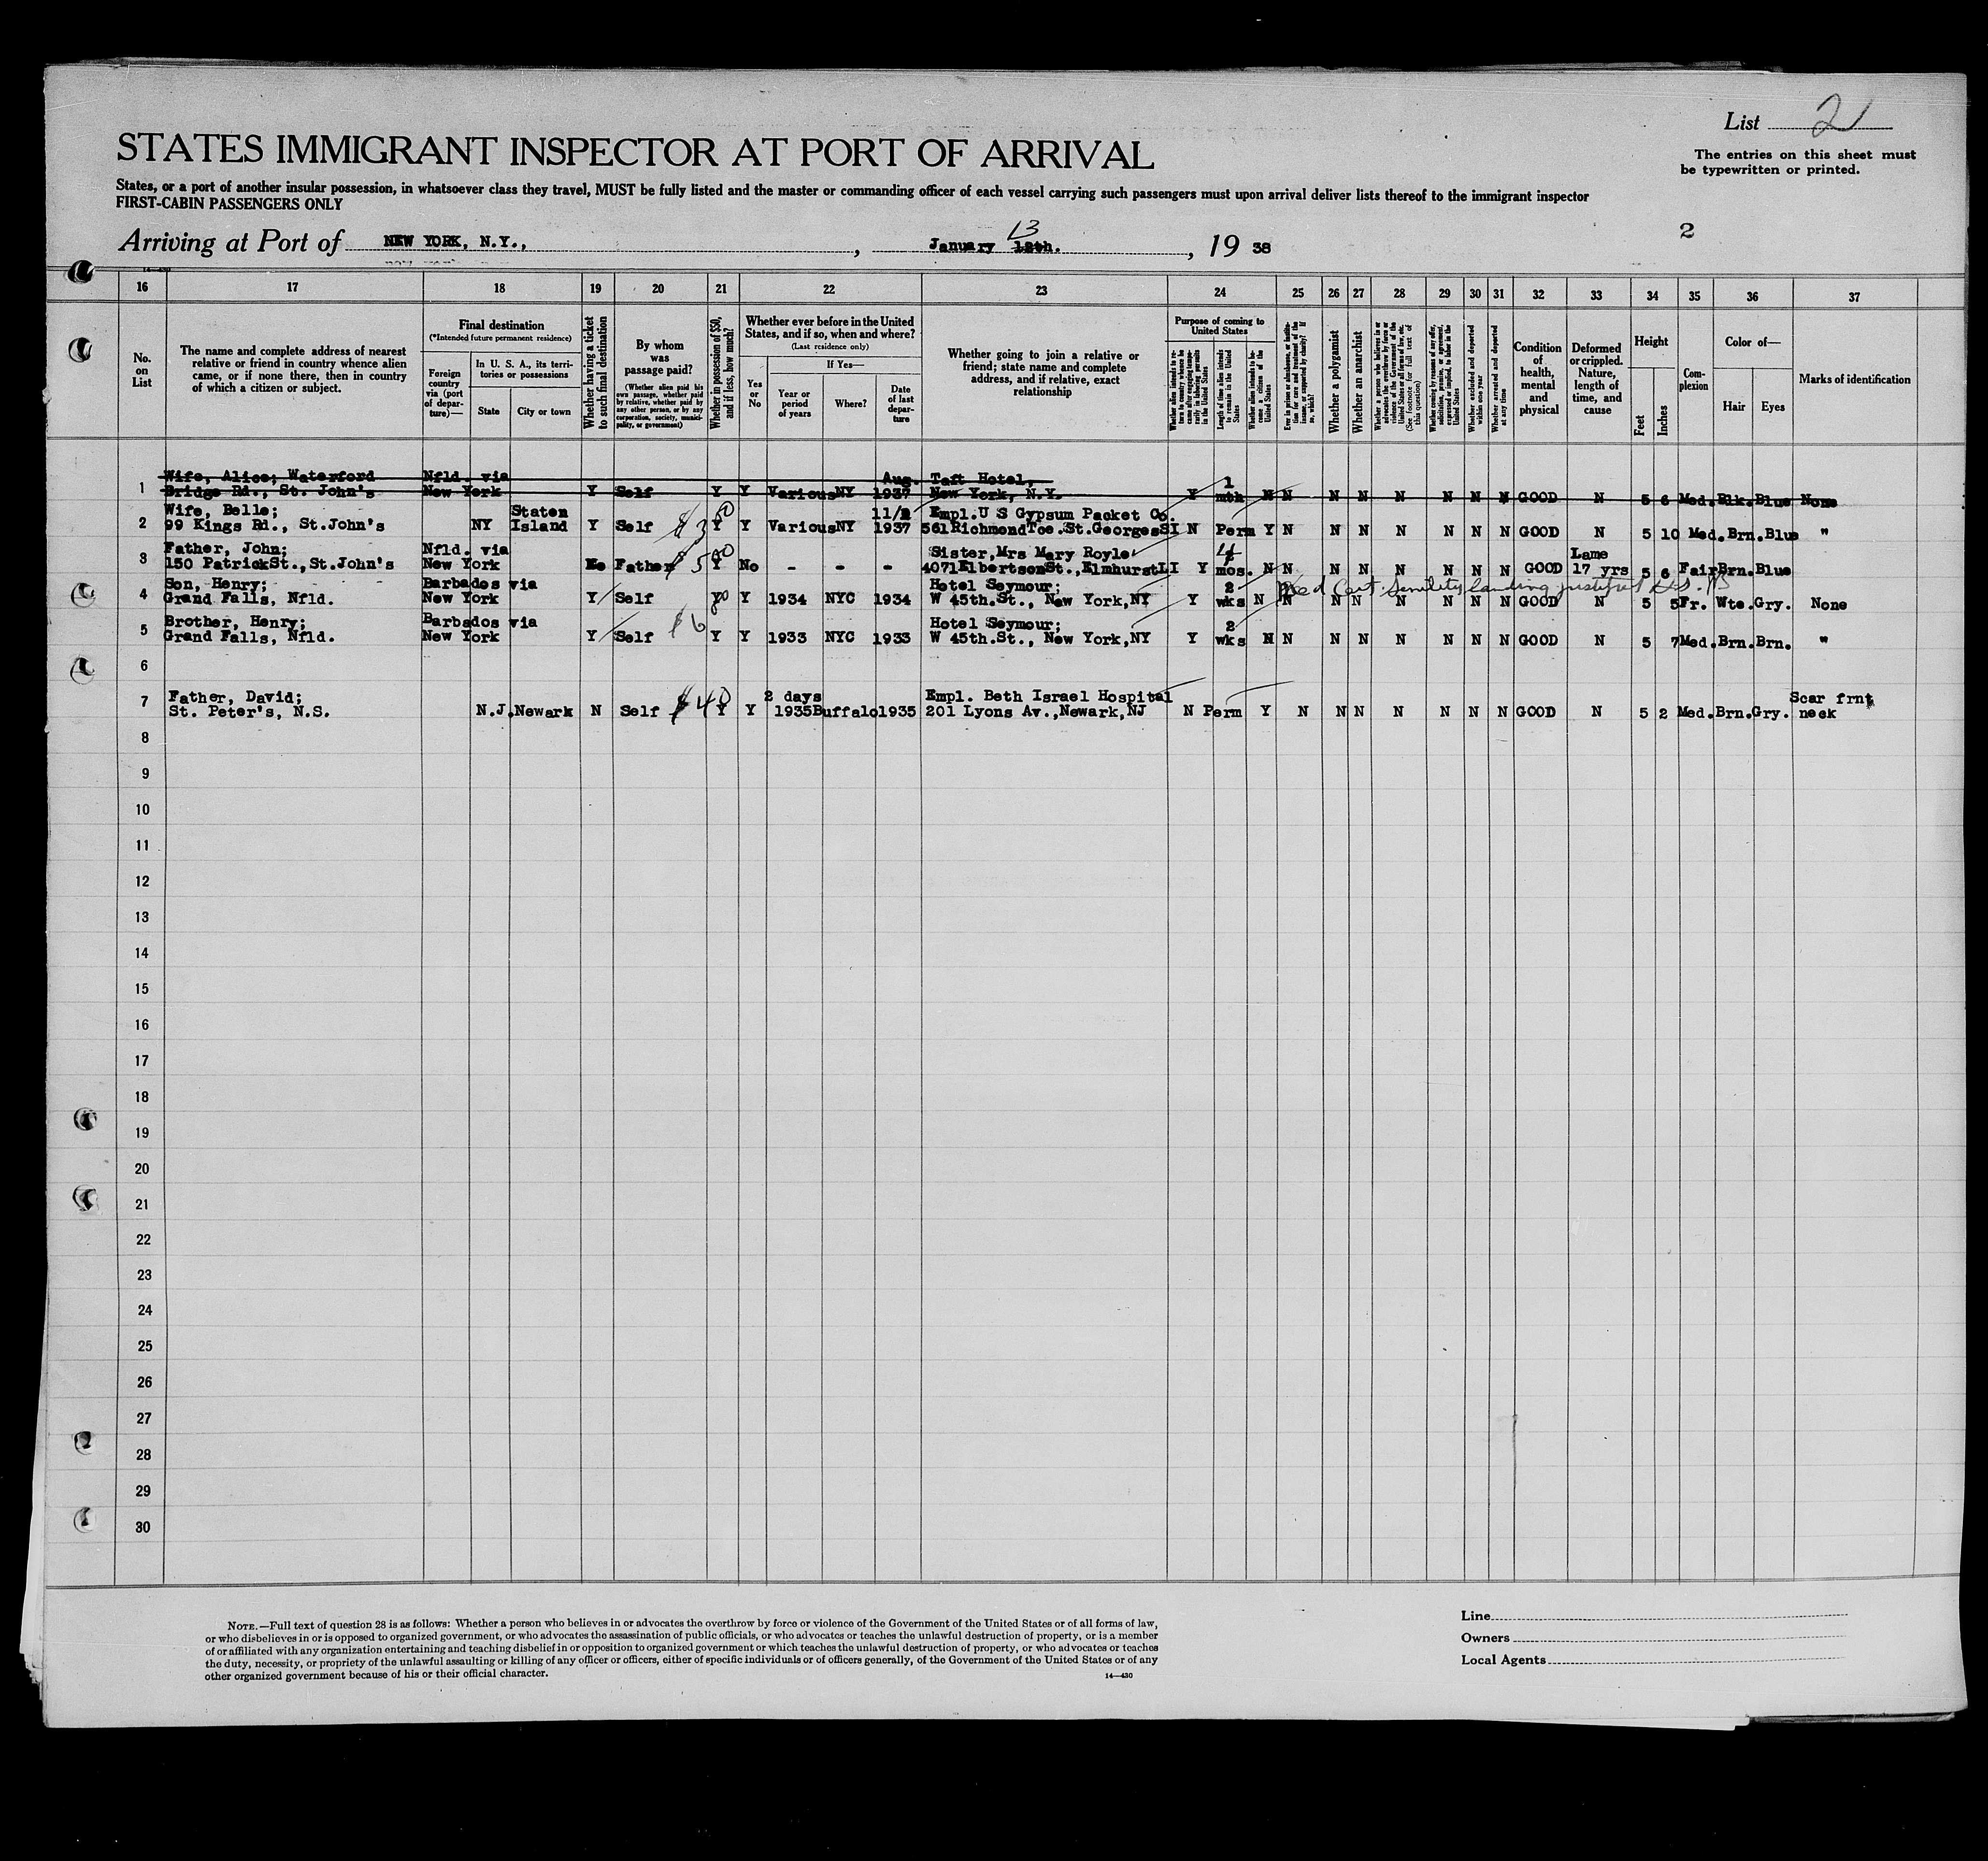 List 2
STATES IMMIGRANT INSPECTOR AT PORT OF ARRIVAL
The entries on this sheet must
be typewritten or printed.
States, or a port of another insular possession, in whatsoever class they travel, MUST be fully listed and the master or commanding officer of each vessel carrying such passengers must upon arrival deliver lists thereof to the immigrant inspector
FIRST-CABIN PASSENGERS ONLY
2
Arriving at Port of NEW YORK, N.Y., , January 12th. 13, 19 38
14-430
16 17 18 19 20 21 22 23 24 25 26 27 28 29 30 31 32 33 34 35 36 37
No. on List
The name and complete address of nearest relative or friend in country whence alien came, or if none there, then in country of which a citizen or subject.
Final destination
(*Intended future permanent residence)
Foreign country via (port of departure)—
In U. S. A., its territories or possessions
State
City or town
Whether having a ticket to such final destination
By whom was passage paid?
(Whether alien paid his own passage, whether paid by relative, whether paid by any other person, or by any corporation, society, municipality, or government)
Whether in possession of $50, and if less, how much?
Whether ever before in the United States, and if so, when and where?
(Last residence only)
Yes or No
If Yes—
Year or period of years
Where?
Date of last departure
Whether going to join a relative or friend; state name and complete address, and if relative, exact relationship
Purpose of coming to United States
Length of time alien intends to remain in the United States
Whether alien intends to become a citizen of the United States
Whether a polygamist
Whether an anarchist
(See footnote for full text of this question)
Whether excluded and deported within one year
Whether arrested and deported at any time
Condition of health, mental and physical
Deformed or crippled. Nature, length of time, and cause
Height
Feet
Inches
Complexion
Color of—
Hair
Eyes
Marks of identification
Wife, Alice; Waterford Nfld. via Aug. Taft Hotel, 1
1 Bridge Rd., St. John's New York Y Self Y Y Various NY 1937 New York, N.Y. Y mth N N N N N N N N GOOD N 5 6 Med. Blk. Blue None
Wife, Belle; Staten 11/2 Empl. U S Gypsum Packet Co.
2 99 Kings Rd., St.John's NY Island Y Self $30 Y Y Various NY 1937 561 Richmond Tce. St.Georges SI N Perm Y N N N N N N N GOOD N 5 10 Med. Brn. Blue "
Father, John; Nfld. via Sister, Mrs Mary Royle 4 Lame
3 150 Patrick St., St.John's New York No Father $500 Y No - - - 4071 Elbertson St., Elmhurst LI Y mos. N N N N N N N N GOOD 17 yrs 5 6 Fair Brn. Blue
Son, Henry; Barbados via Hotel Seymour; 2 Med Cert. Senility landing justified
4 Grand Falls, Nfld. New York Y Self Y 1934 NYC 1934 W 45th.St., New York, NY Y wks N N N N N N N N GOOD N 5 5 Fr. Wte. Gry. None
Brother, Henry; Barbados via Hotel Seymour; 2
5 Grand Falls, Nfld. New York Y Self Y Y 1933 NYC 1933 W 45th.St., New York, NY Y wks N N N N N N N N GOOD N 5 7 Med. Brn. Brn. "
6
Father, David; 2 days Empl. Beth Israel Hospital Scar frnt
7 St. Peter's, N.S. N.J. Newark N Self $40 Y Y 1935 Buffalo 1935 201 Lyons Av., Newark, NJ N Perm Y N N N N N N N GOOD N 5 2 Med. Brn. Gry. neck
8
9
10
11
12
13
14
15
16
17
18
19
20
21
22
23
24
25
26
27
28
29
30
NOTE.—Full text of question 28 is as follows: Whether a person who believes in or advocates the overthrow by force or violence of the Government of the United States or of all forms of law,
or who disbelieves in or is opposed to organized government, or who advocates the assassination of public officials, or who advocates or teaches the unlawful destruction of property, or is a member
of or affiliated with any organization entertaining and teaching disbelief in or opposition to organized government or which teaches the unlawful destruction of property, or who advocates or teaches
the duty, necessity, or propriety of the unlawful assaulting or killing of any officer or officers, either of specific individuals or of officers generally, of the Government of the United States or of any
other organized government because of his or their official character.
14—430
Line
Owners
Local Agents